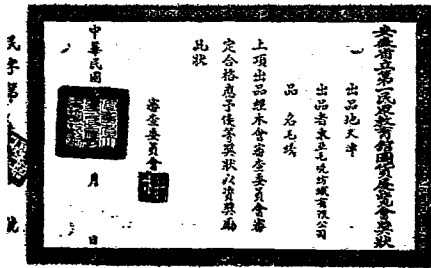 安徽省立第一民眾教育館國貨展覽會獎狀
出品地天津
出品者東亞毛呢紡織有限公司
品名毛線
上項出品經本會審查委員會審
定合格應予優等獎狀以資獎勵
此狀
審查委員會
中華民國 月 日
民字第 號